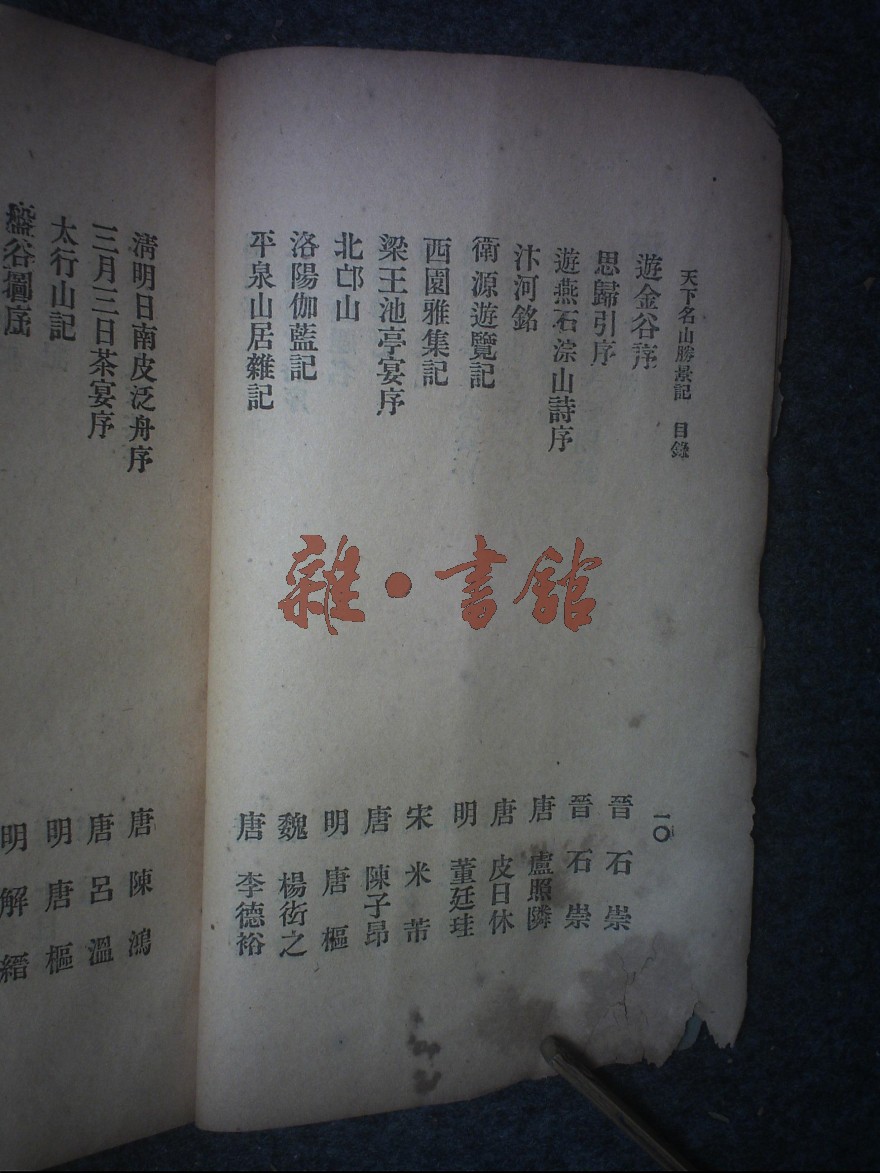 天下名山勝景記 目錄 一〇
遊金谷序 晉 石崇
思歸引序 晉 石崇
遊燕石淙山詩序 唐 盧照隣
汴河銘 唐 皮日休
衛源遊覽記 明 董廷珪
西園雅集記 宋 米芾
梁王池亭宴序 唐 陳子昂
北邙山 明 唐樞
洛陽伽藍記 魏 楊衒之
平泉山居雜記 唐 李德裕
清明日南皮泛舟序 唐 陳鴻
三月三日茶宴序 唐 呂溫
太行山記 明 唐樞
盤谷圖序 明 解縉
雜·書館